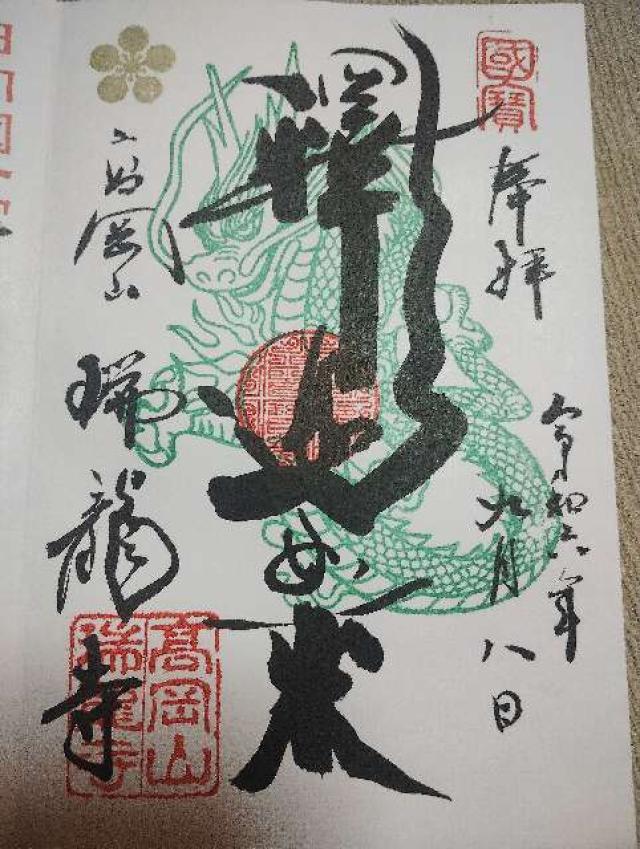 國寶
奉拝
令和六年
九月八日
釋迦如来
高岡山
瑞龍寺
高岡山
瑞龍寺